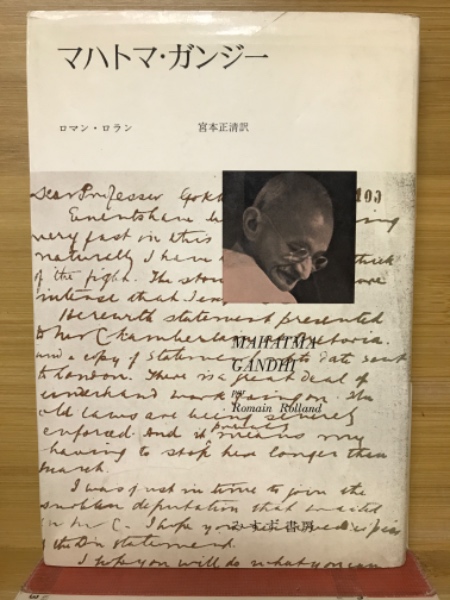 マハトマ・ガンジー
ロマン・ロラン 宮本正清訳
Dear Professor 103
Events have
very fast in this
naturally I have thick
of the fight. The
intense that I
Herewith statement presented
to Mr Chamberlain Pretoria.
and a copy of statement to date sent
to London. There is a great deal of
underhand work going on. The
old laws are being severely
enforced. And it means my
probably
having to stop here longer than
March.
I was just in time to join the
deputation that waited
on Mr C. I hope you
the statement.
I hope you will do what you can
MAHATMA
GANDHI
par
Romain Rolland
みすず書房